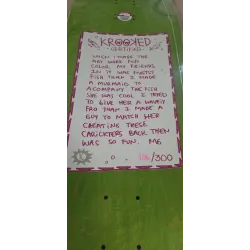 KROOKED
WHEN I MADE THE
ART WORK FOR
COLOR MY FRIENDS
IN IT WAS MOSTLY
FISH THEN I MADE
A MERMAID TO
ACOMPANY THE FISH
SHE WAS COOL I TRIED
TO GIVE HER A
FRO THAN I MADE A
GUY TO MATCH HER
CREATING THESE
BACK THEN
WAS SO FUN. MG
/300